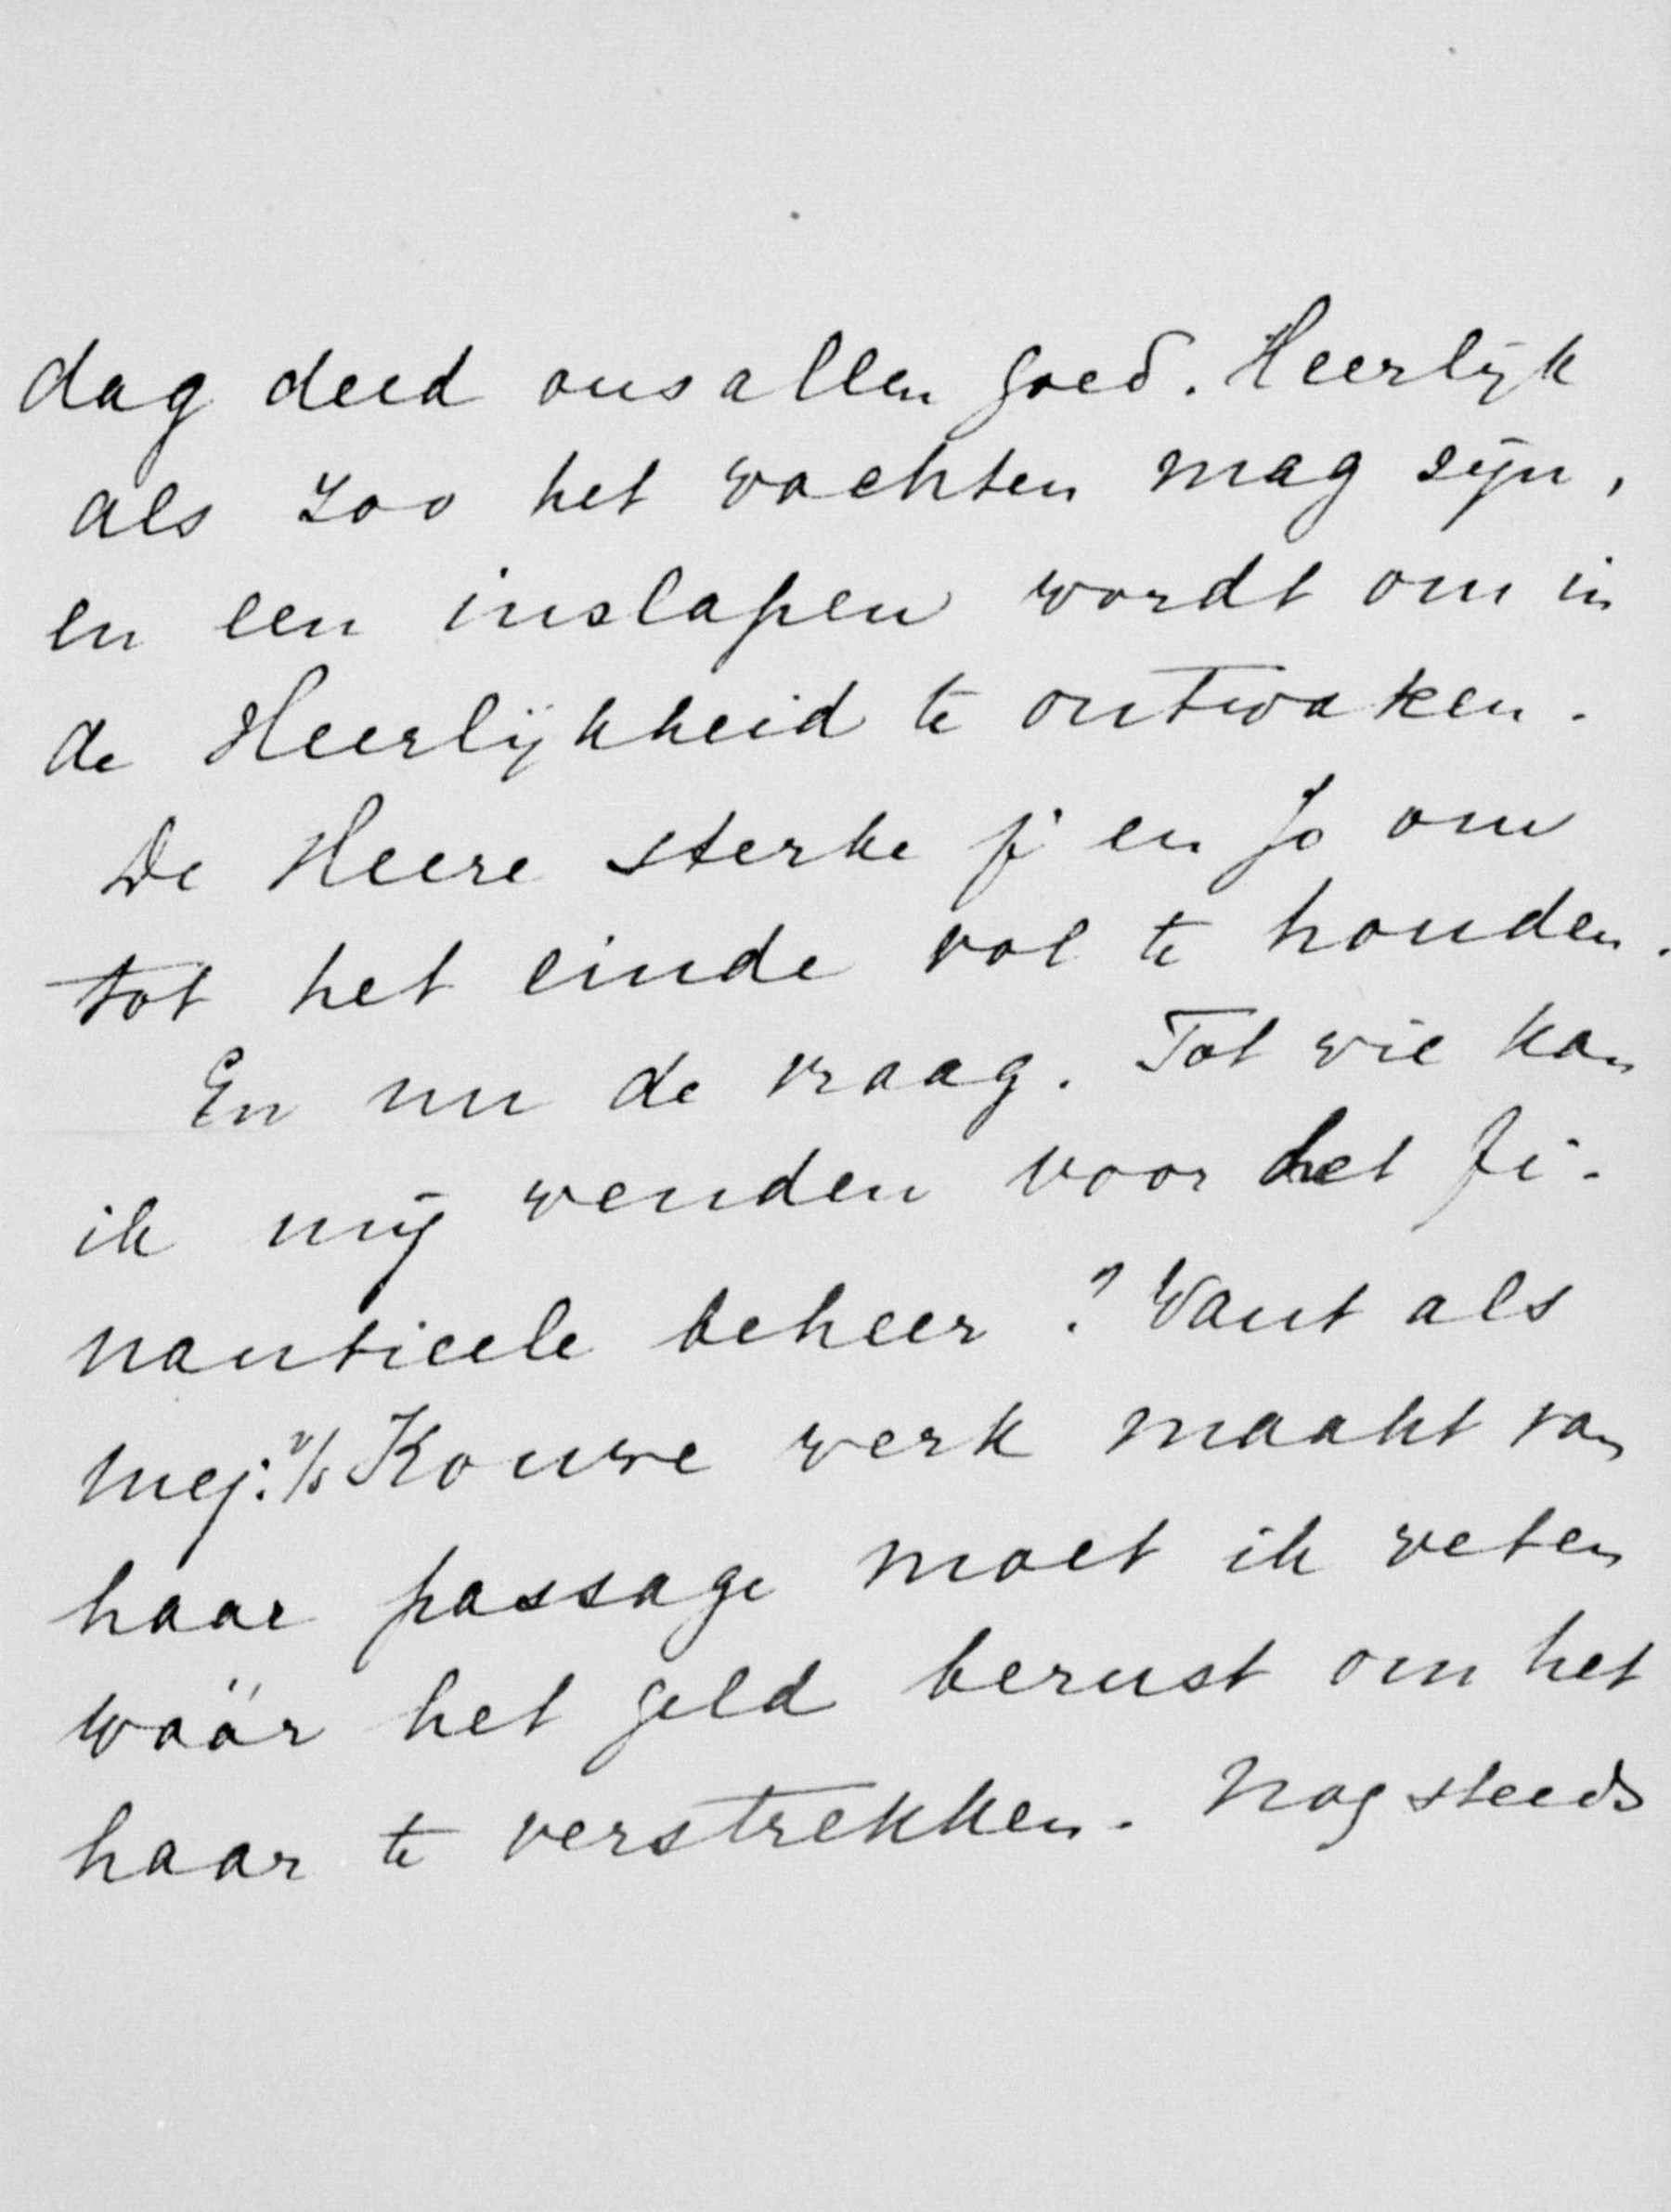 dag deed ons allen goed. Heerlijk
als zoo het wachten mag zijn,
en een inslapen wordt om in
de Heerlijkheid te ontwaken.
De Heere sterke ji en Jo om
tot het einde vol te houden.
En nu de vraag. Tot wie kan
ik mij wenden voor het fi-
nantieele beheer? Want als
mej: v/d Kouwe werk maakt van
haar passage moet ik weten
wáár het geld berust om het
haar te verstrekken. Nog steeds